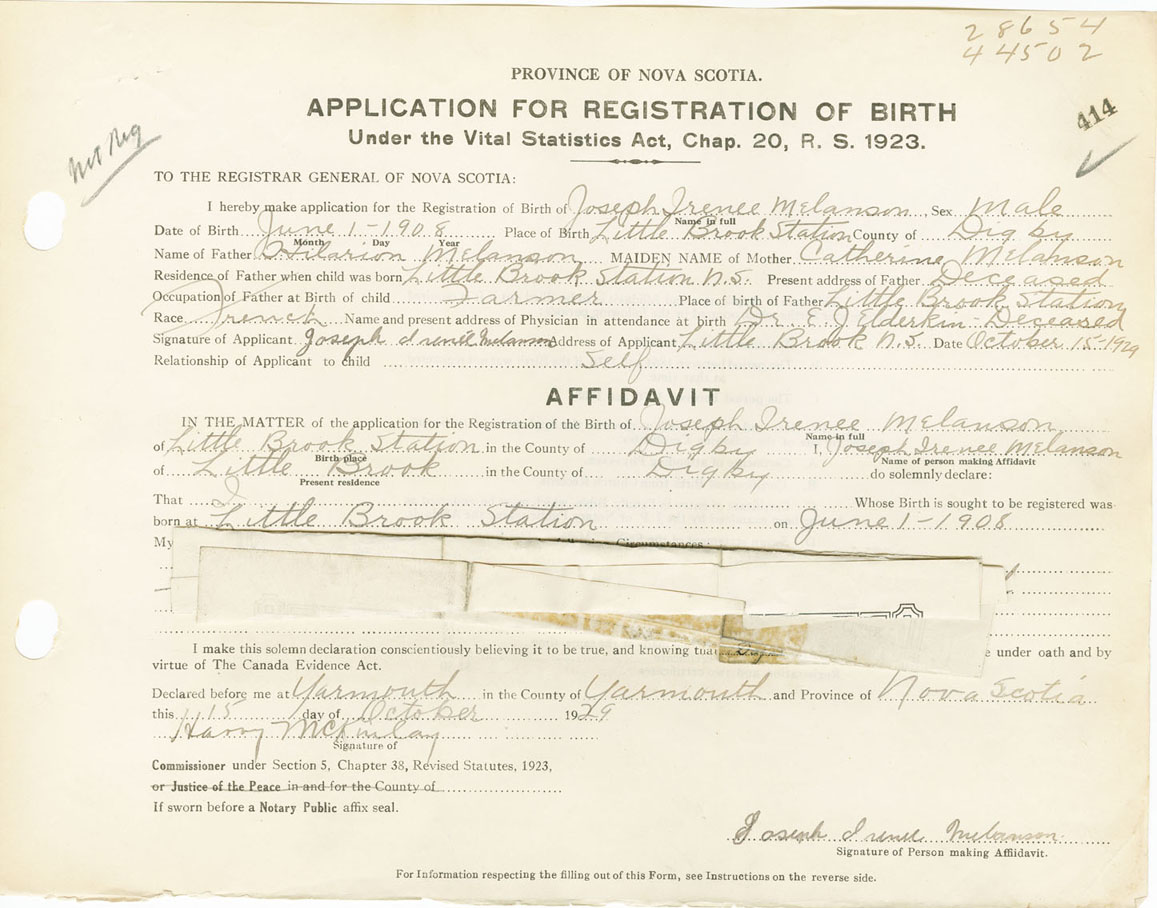 28654
44502
PROVINCE OF NOVA SCOTIA.
414
APPLICATION FOR REGISTRATION OF BIRTH
Under the Vital Statistics Act, Chap. 20, R. S. 1923.
Not Reg
TO THE REGISTRAR GENERAL OF NOVA SCOTIA:
I hereby make application for the Registration of Birth of Joseph Irenee Melanson Sex Male
Name in full
Date of Birth June 1-1908 Place of Birth Little Brook Station County of Digby
Month Day Year
Name of Father Hilarion Melanson MAIDEN NAME of Mother Catherine Melanson
Residence of Father when child was born Little Brook Station N.S. Present address of Father Deceased
Occupation of Father at Birth of child Farmer Place of birth of Father Little Brook Station
Race French Name and present address of Physician in attendance at birth Dr. E. J. Elderkin - Deceased
Signature of Applicant Joseph Irenee Melanson Address of Applicant Little Brook N.S. Date October 15-1929
Relationship of Applicant to child Self
AFFIDAVIT
IN THE MATTER of the application for the Registration of the Birth of Joseph Irenee Melanson
Name in full
of Little Brook Station in the County of Digby I, Joseph Irenee Melanson
Birth place Name of person making Affidavit
of Little Brook in the County of Digby do solemnly declare:
Present residence
That I Whose Birth is sought to be registered was
born at Little Brook Station on June 1-1908
My following Circumstances:
I make this solemn declaration conscientiously believing it to be true, and knowing that under oath and by
virtue of The Canada Evidence Act.
Declared before me at Yarmouth in the County of Yarmouth and Province of Nova Scotia
this 15 day of October 1929
Harry McKinlay
Signature of
Commissioner under Section 5, Chapter 38, Revised Statutes, 1923,
or Justice of the Peace in and for the County of
If sworn before a Notary Public affix seal.
Joseph Irenee Melanson
Signature of Person making Affiidavit.
For Information respecting the filling out of this Form, see Instructions on the reverse side.